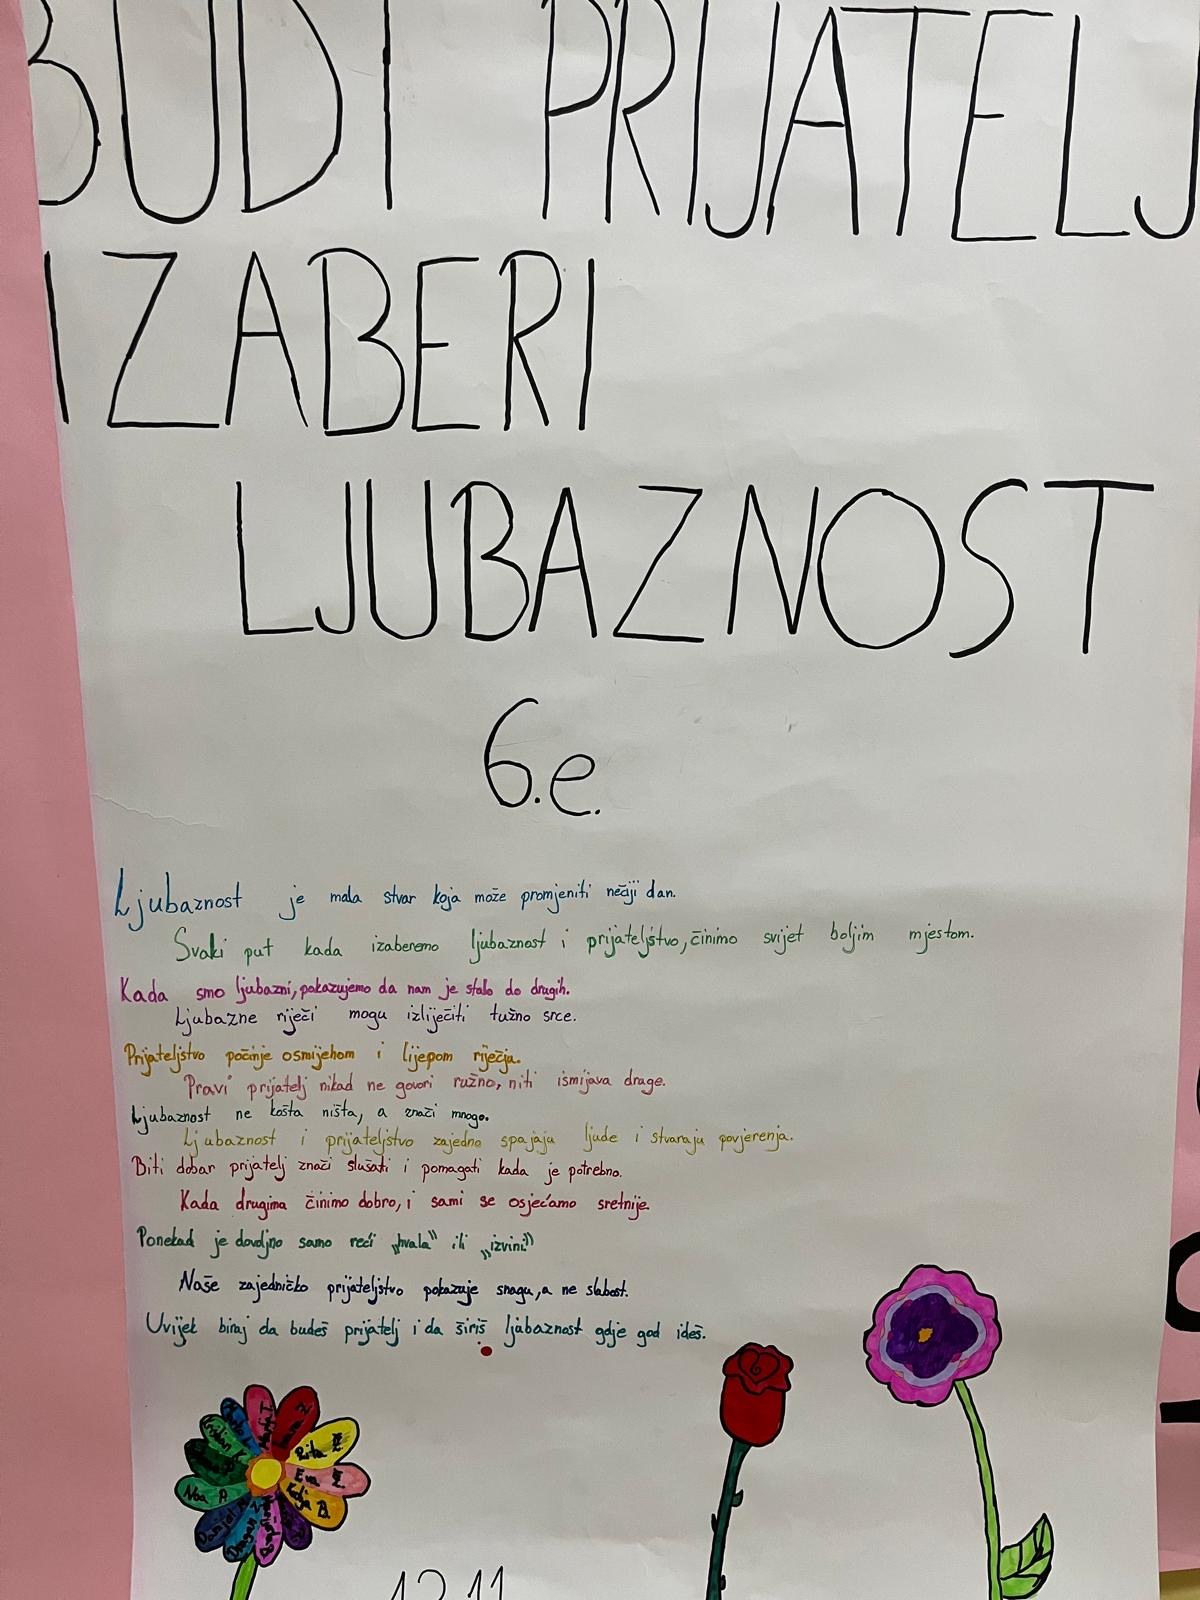 BUDI PRIJATELJ
IZABERI
LJUBAZNOST
6.e.
Ljubaznost je mala stvar koja može promjeniti nečiji dan.
Svaki put kada izaberemo ljubaznost i prijateljstvo, činimo svijet boljim mjestom.
Kada smo ljubazni, pokazujemo da nam je stalo do drugih.
Ljubazne riječi mogu izliječiti tužno srce.
Prijateljstvo počinje osmijehom i lijepom riječja.
Pravi prijatelj nikad ne govori ružno, niti ismijava drage.
Ljubaznost ne košta ništa, a znači mnogo.
Ljubaznost i prijateljstvo zajedno spajaju ljude i stvaraju povjerenja.
Biti dobar prijatelj znači slušati i pomagati kada je potrebno.
Kada drugima činimo dobro, i sami se osjećamo sretnije.
Ponekad je dovoljno samo reći „hvala” ili „izvini”
Naše zajedničko prijateljstvo pokazuje snagu, a ne slabost.
Uvijek biraj da budeš prijatelj i da širiš ljubaznost gdje god ideš.
Rita
Eva
B.
Noa A
12.11